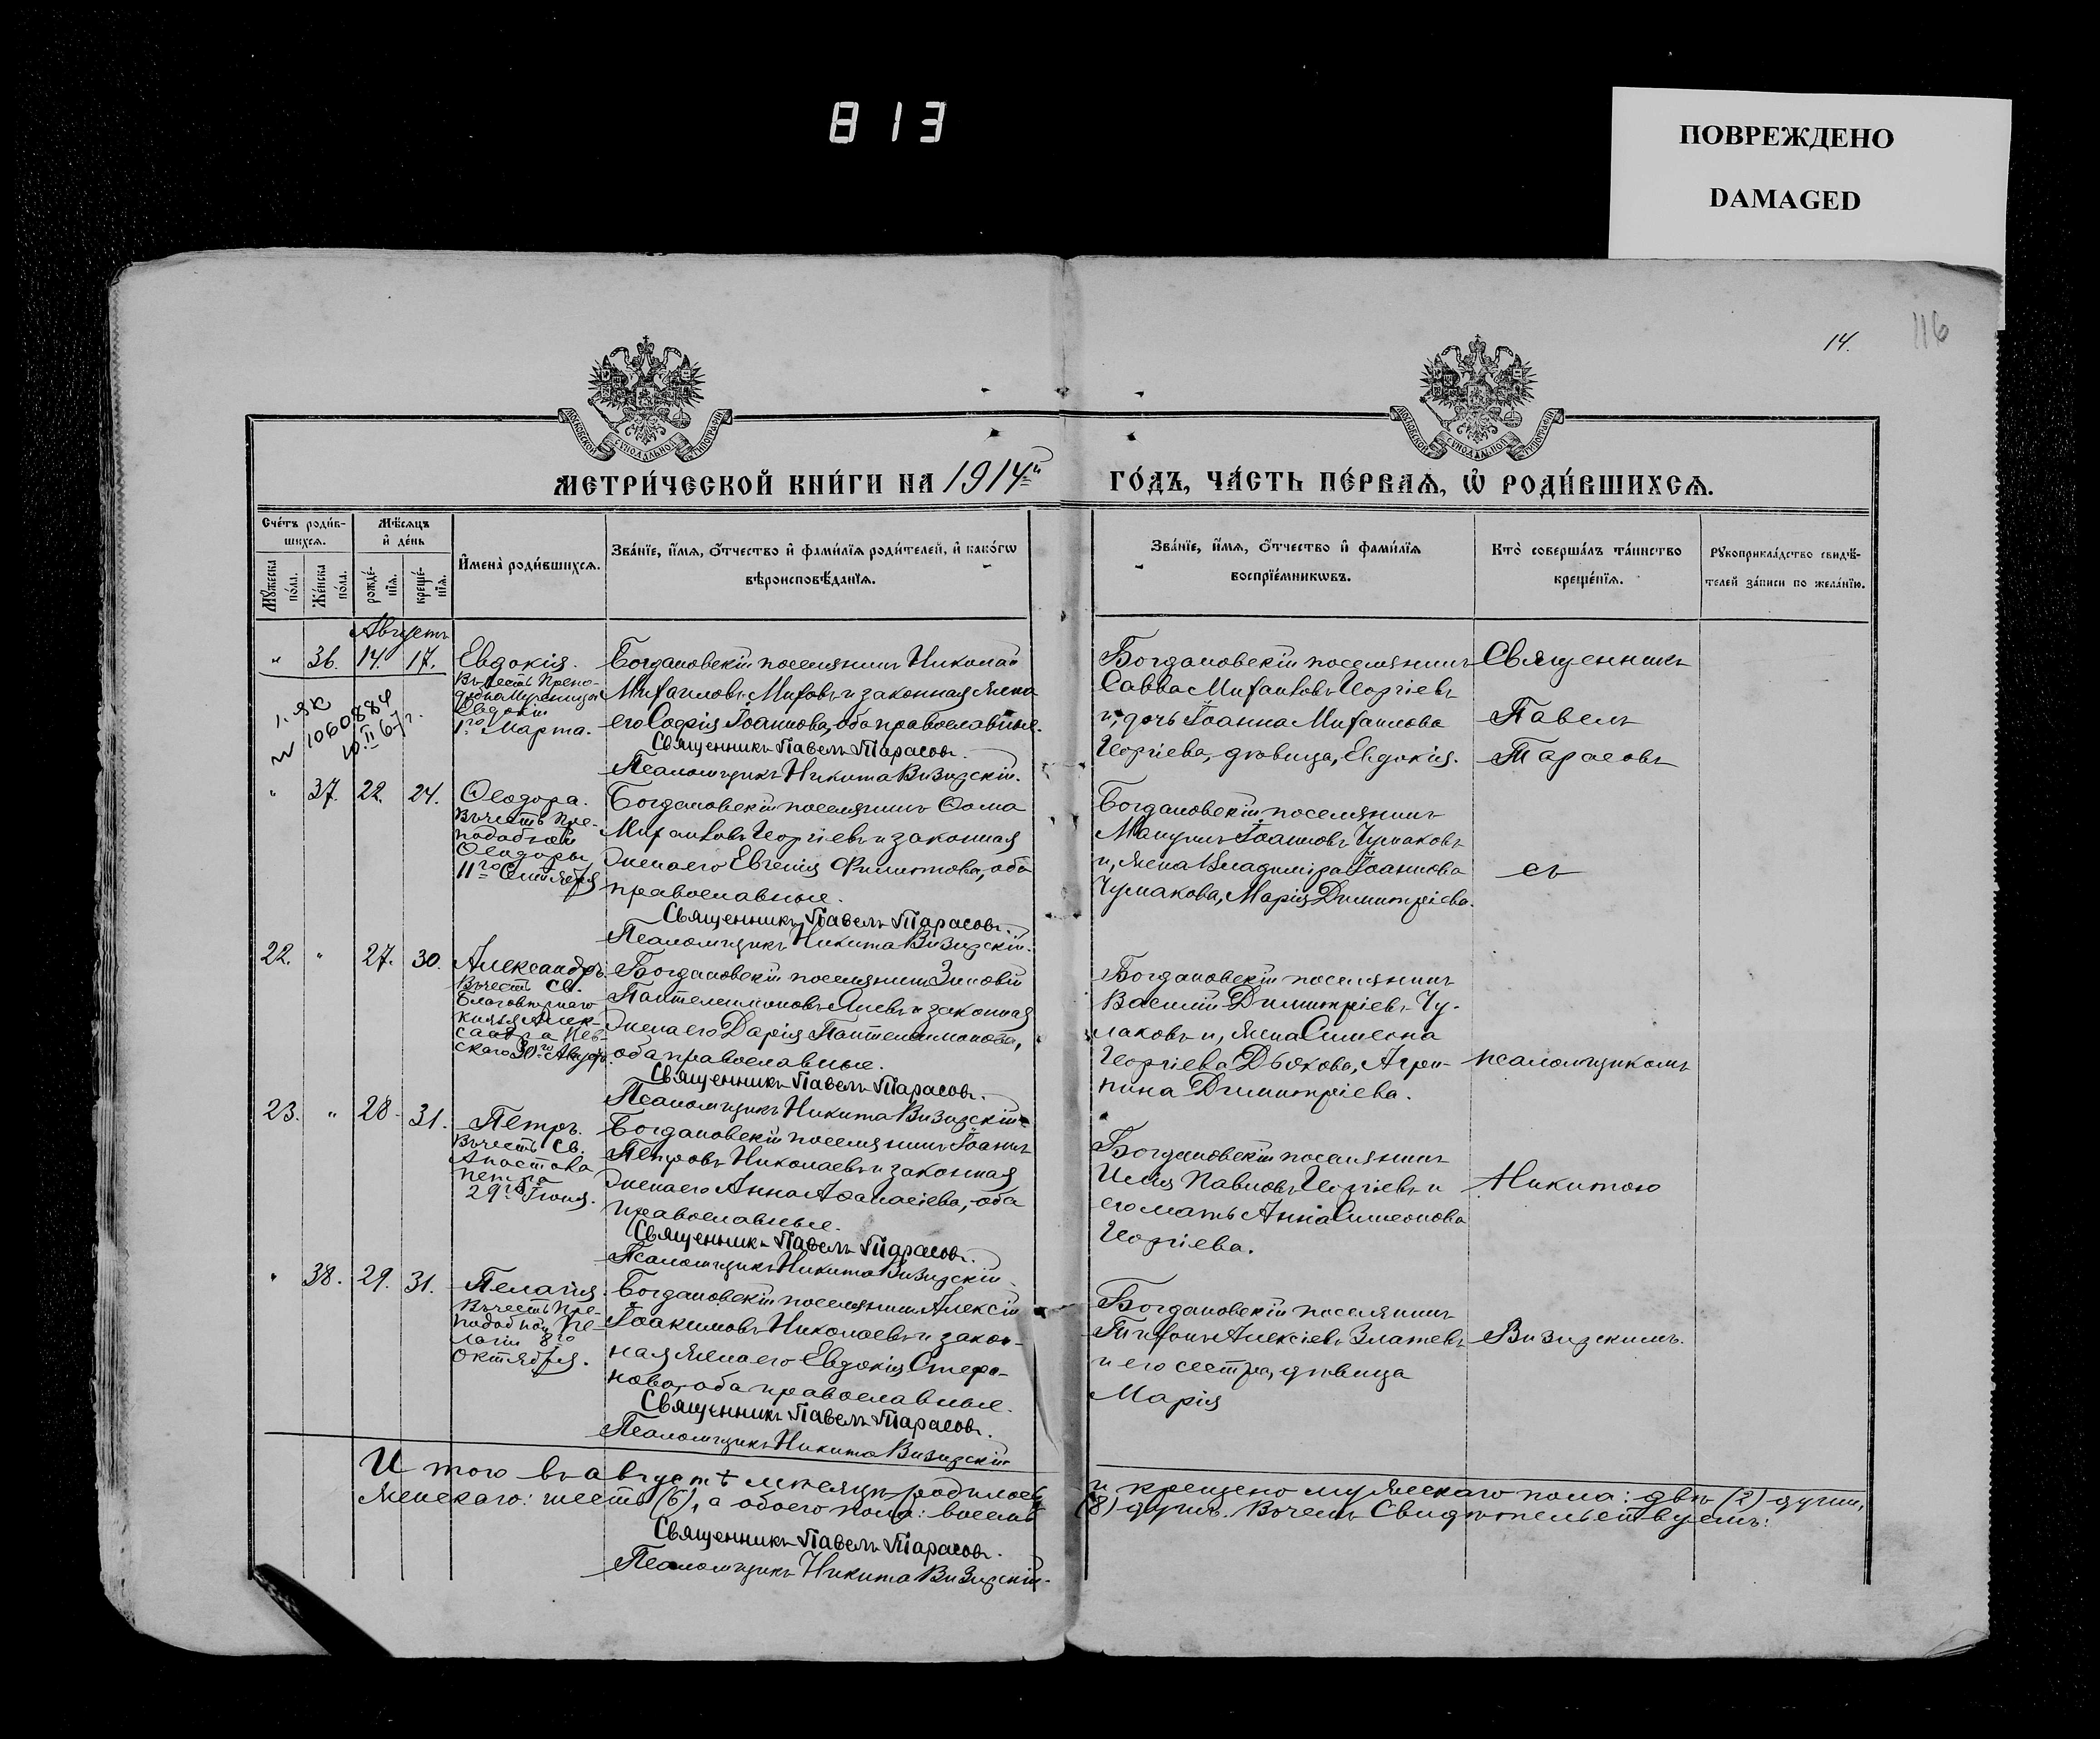 813
ПОВРЕЖДЕНО
DAMAGED
116
14.
МОСКОВСКОЙ СѴНОДАЛЬНОЙ ТИПОГРАФІИ
МОСКОВСКОЙ СѴНОДАЛЬНОЙ ТИПОГРАФІИ
МЕТРИ́ЧЕСКОЙ КНИ́ГИ НА 1914й
ГО́ДЪ, ЧА́СТЬ ПЕ́РВАѦ, Ѡ҆ РОДИ́ВШИХСѦ.
Сче́тъ роди́в-
шихсѧ.
Мѣ́сѧцъ
и҆ де́нь
Мꙋ́жеска
по́ла.
Же́нска
по́ла.
рожде́-
нїѧ.
креще́-
нїѧ.
И҆мена̀ роди́вшихсѧ.
Зва́нїе, и҆́мѧ, ѻ҆́тчество и҆ фами́лїѧ роди́телей, и҆ како́гѡ
вѣроисповѣ́данїѧ.
Зва́нїе, и҆́мѧ, ѻ҆́тчество и҆ фами́лїѧ
воспрїе́мникѡвъ.
Кто̀ соверша́лъ та́инство
креще́нїѧ.
Рꙋкоприкла́дство свидѣ́-
телей за́писи по жела́нїю.
Августъ
" 36. 14. 17. Евдокія.
Въ честь Препо-
добномученицы
Евдокіи
1го Марта.
1060884
10.II 67г.
Богдановскій поселянинъ Николай
Михаиловъ Мифовъ и законная жена
его Софія Іоаннова, оба православные.
Священникъ Павелъ Тарасовъ.
Псаломщикъ Никита Визирскій.
Богдановскій поселянинъ
Савва Михаиловъ Георгіевъ
и, дочь Іоанна Михаилова
Георгіева, дѣвица, Евдокія.
Священникъ
Павелъ
Тарасовъ
" 37. 22. 24. Ѳеодора.
Въ честь Пре-
подобной
Ѳеодоры,
11го Сентября
Богдановскій поселянинъ Ѳома
Михаиловъ Георгіевъ и законная
жена его Евгенія Филиппова, оба
православные.
Священникъ Павелъ Тарасовъ.
Псаломщикъ Никита Визирскій.
Богдановскій поселянинъ
Іоанновъ Чумаковъ
и, жена Владиміра Іоаннова
Чумакова, Марія Димитріева.
съ
22. " 27. 30. Александръ.
Въ честь Св.
Благовѣрнаго
князя Алек-
сандра Нев-
скаго 30го Августа
Богдановскій поселянинъ Зиновій
Пантелеимоновъ и законная
жена его Дарія Пантелеимонова,
оба православные.
Священникъ Павелъ Тарасовъ.
Псаломщикъ Никита Визирскій.
Богдановскій поселянинъ
Василій Димитріевъ Чу-
маковъ и, жена Симеона
Георгіева Дѣкова, Агрип-
пина Димитріева.
псаломщикомъ
23. " 28. 31. Петръ.
Въ честь Св.
Апостола
Петра
29го Іюня.
Богдановскій поселянинъ Іоаннъ
Петровъ Николаевъ и законная
жена его Анна Аѳанасіева, оба
православные.
Священникъ Павелъ Тарасовъ.
Псаломщикъ Никита Визирскій
Богдановскій поселянинъ
Илія Павловъ Георгіевъ и
его мать Анна Симеонова
Георгіева.
Никитою
" 38. 29. 31. Пелагія.
Въ честь Пре-
подобной Пе-
лагіи 8го
Октября.
Богдановскій поселянинъ Алексій
Іоакимовъ Николаевъ и закон-
ная жена его Евдокія Стефа-
нова, оба православные.
Священникъ Павелъ Тарасовъ.
Псаломщикъ Никита Визирскій
Богдановскій поселянинъ
Трифонъ Алексіевъ Златевъ
и его сестра, дѣвица
Марія
Визирскимъ.
И того въ августѣ мѣсяцѣ родилось и крещено мужескаго пола: двѣ (2) души,
женскаго: шесть (6), а обоего пола: восемь (8) душъ. Въ чемъ Свидѣтельствуемъ:
Священникъ Павелъ Тарасовъ.
Псаломщикъ Никита Визирскій.